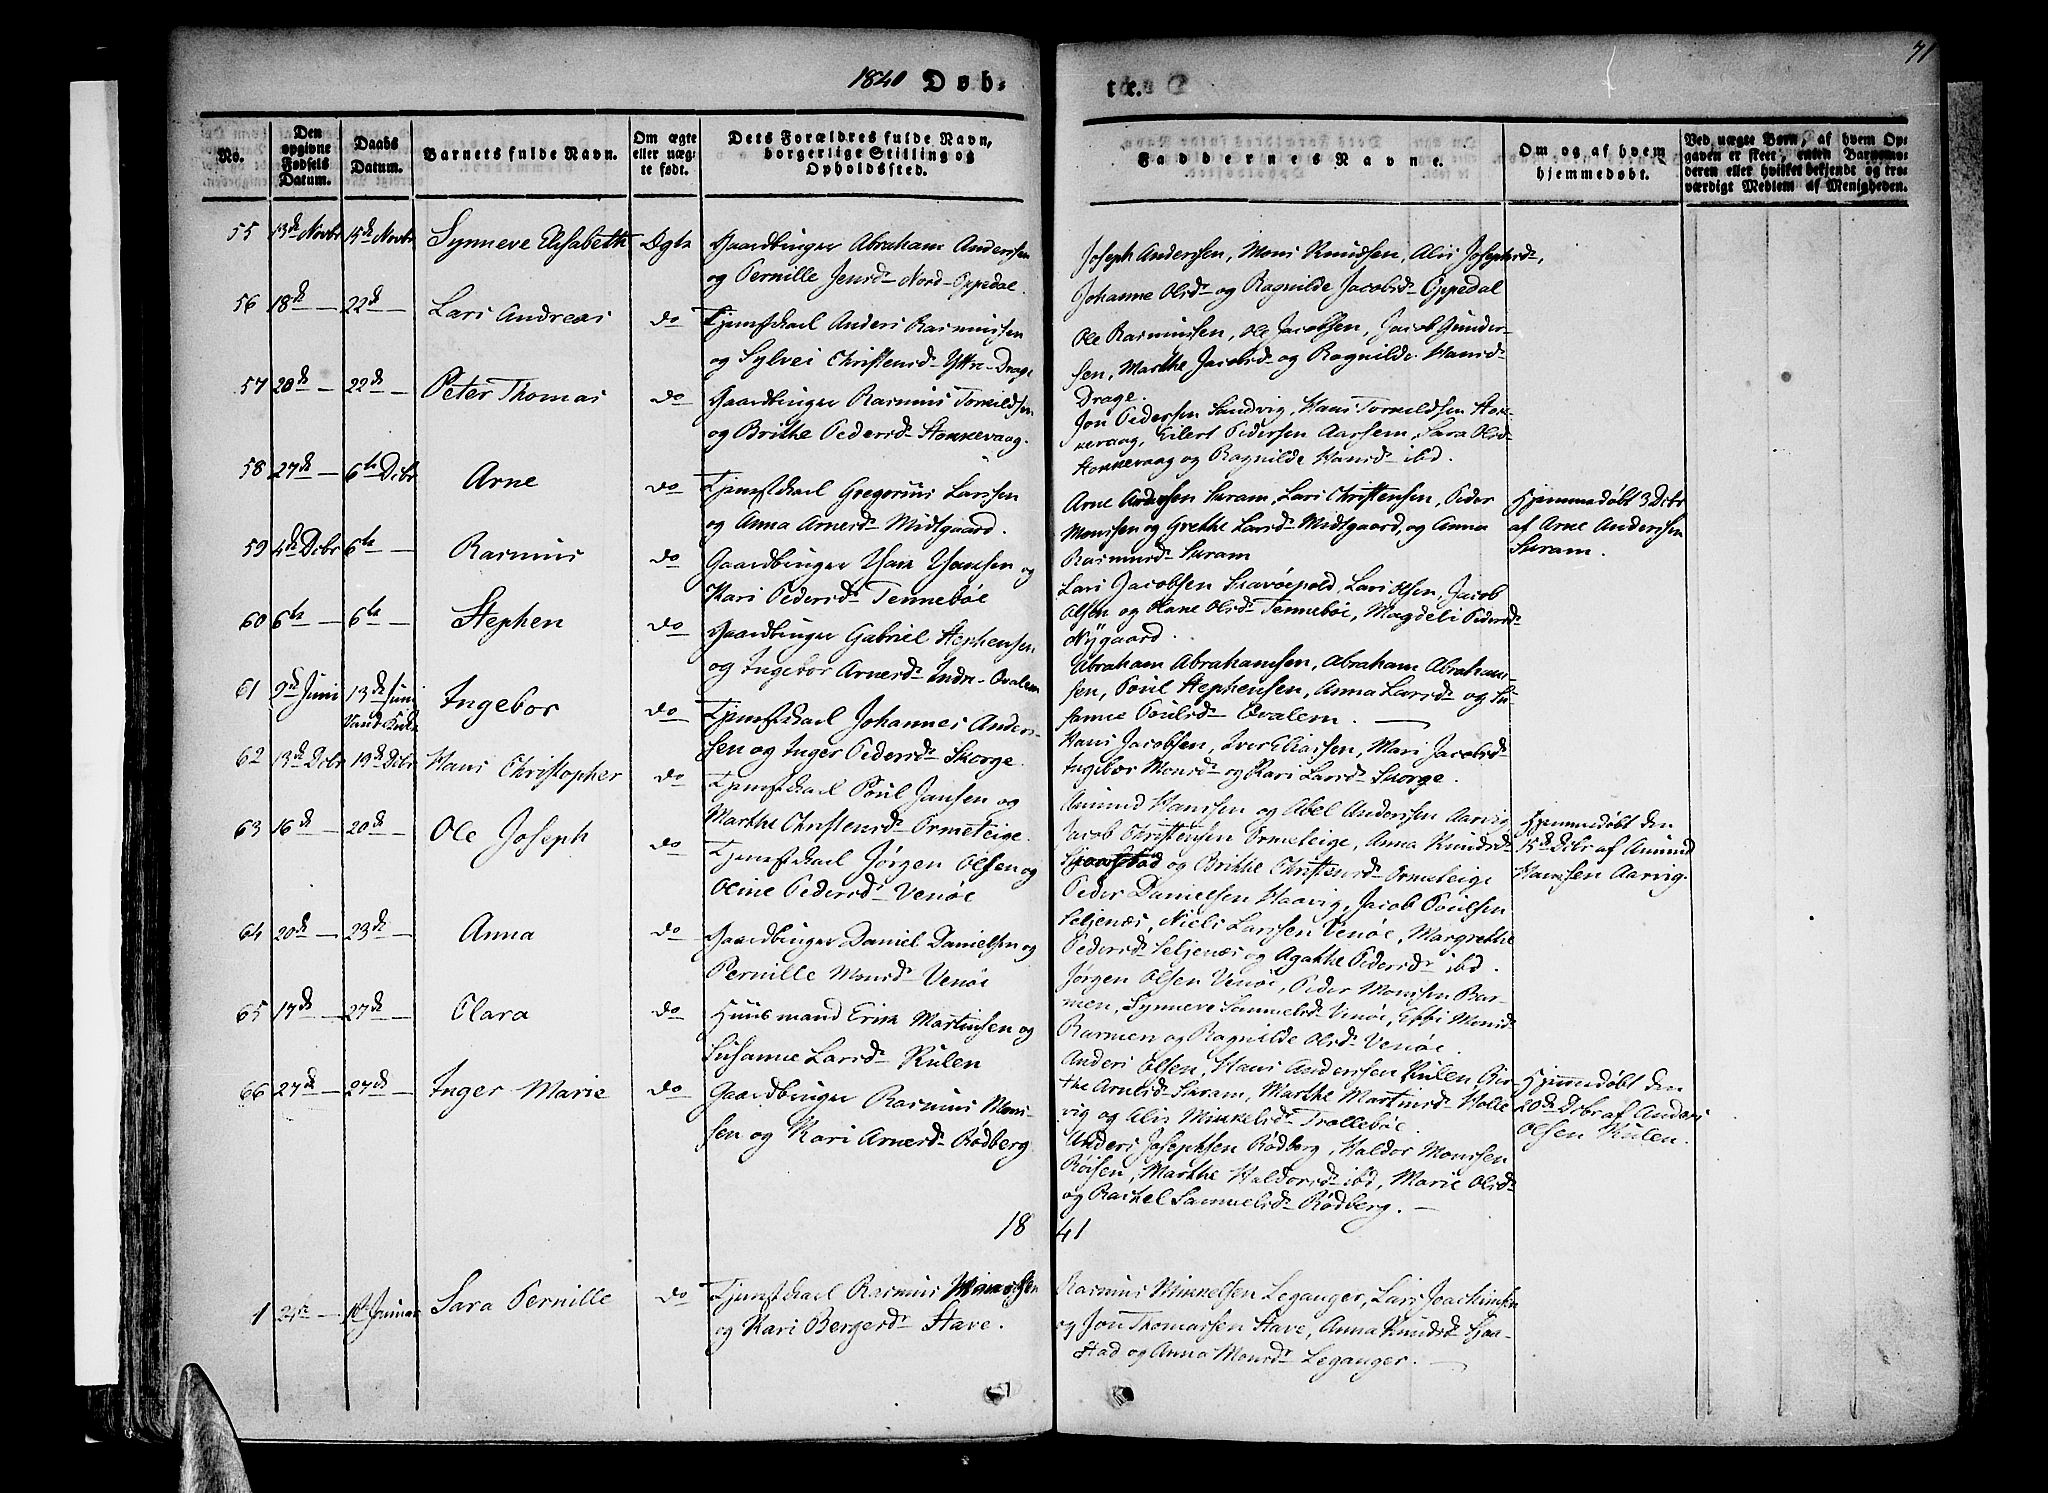 1840 Døb-
te.
71
No.
Den opgivne Fødsels Datum.
Daabs Datum.
Barnets fulde Navn.
Om ægte eller uægte født.
Dets Forældres fulde Navn, borgerlige Stilling og Opholdssted.
Faddernes Navne.
Om og af hvem hjemmedøbt.
Ved uægte Børn, af hvem Opgaven er skeet, enten Barnemoderen eller hvilket bekjendt og troværdigt Medlem af Menigheden.
55 13de Novbr 15de Novbr Synneve Elisabeth Ægte Gaardbruger Abraham Anderssen
og Pernille Jensdr Nord-Oppedal.
Joseph Anderssen, Mons Knudsen, Alis Josephsdr,
Johanne Olsdr og Ragnilde Jacobsdr Oppedal
56 18de — 22de — Lars Andreas do Tjenestekarl Anders Rasmussen
og Sylvei Christensdr Yttre-Drage
Ole Rasmussen, Ole Jacobsen, Jacob Gunder-
sen, Marthe Jacobsdr og Ragnilde Hansdr
Drage.
57 20de — 22de — Peter Thomas do Gaardbruger Rasmus Torkildsen
og Brithe Pedersdr Stokkevaag.
Jon Pedersen Sandvig, Hans Torkildsen Stok-
kevaag, Eilert Pedersen Aarsem, Sara Olsdr
Stokkevaag og Ragnilde Hansdr ibd.
58 27de — 6te Dcbr Arne do Tjenestekarl Gregorius Larssen
og Anna Arnesdr Midtgaard.
Arne Anderssen Saram, Lars Christensen, Peder
Monssen og Grethe Larsdr Midtgaard, og Anna
Rasmusdr Saram
Hjemmedøbt 3 Dcbr
af Arne Anderssen
Saram.
59 4de Dcbr 6te — Rasmus do Gaardbruger Hans Hansen og
Kari Pedersdr Tennebøe
Lars Jacobsen Skavøepold, Lars Olsen, Jacob
Olsen og Olane Olsdr Tennebøe, Magdeli Pedersdr
Nygaard.
60 6te — 6te — Stephen do Gaardbruger Gabriel Stephensen
og Ingebor Arnesdr Indre-Qvalem
Abraham Abrahamsen, Abraham Abraham-
sen, Poul Stephensen, Anna Larsdr og Su-
sanne Poulsdr Qvalem. —
61 9de Juni 13de Juni Ingebor do Tjenestekarl Johannes Anders-
sen og Inger Pedersdr Skorge.
Hans Jacobsen, Iver Eliassen, Mari Jacobsdr
Ingebor Monsdr og Kari Larsdr Skorge.
62 13de Dcbr 19de Dcbr Hans Christopher do Tjenestekarl Poul Jansen og
Marthe Christensdr Ormeleige.
Amund Hanssen og Abel Anderssen Aarvig
Jacob Christensen Ormeleige, Anna Knudsdr
og Brithe Christensdr Ormeleige
Hjemmedøbt den
15de Dcbr af Amund
Hanssen Aarvig.
63 16de — 20de — Ole Joseph do Tjenestekarl Jørgen Olsen og
Oline Pedersdr Venøe
Peder Danielsen Haavig, Jacob Poulsen
Seljenæs, Niels Larssen Venøe, Margrethe
Pedersdr Seljenæs og Agathe Pedersdr ibd.
64 20de — 23de — Anna do Gaardbruger Daniel Danielsen og
Pernille Monsdr Venøe
Jørgen Olsen Venøe, Peder Monssen Bar-
men, Synneve Samuelsdr Venøe, Effi Monsdr
Barmen og Ragnilde Olsdr Venøe.
65 17de — 27de — Clara do Huusmand Erik Martinsen og
Susanne Larsdr Kulen
Anders Olsen, Hans Anderssen Kulen, Bir-
the Arnesdr Saram, Marthe Martinsdr Holle
vig og Alis Mikkelsdr Trollebøe.
Hjemmedøbt den
20de Dcbr af Anders
Olsen Kulen.
66 27de — 27de — Inger Marie do Gaardbruger Rasmus Mons-
sen og Kari Arnesdr Rødberg
Anders Josephsen Rødberg, Haldor Monssen
Røisen, Marthe Haldorsdr ibd, Marie Olsdr
og Rachel Samuelsdr Rødberg. —
18 41
1 Januar Sara Pernille do Tjenestekarl Rasmus
og Kari Bergersdr Stave.
Rasmus Mikkelsen Leganger, Lars Joachimsen
og Jon Thomassen Stave, Anna Knudsdr Hjaa-
stad og Anna Monsdr Leganger. —